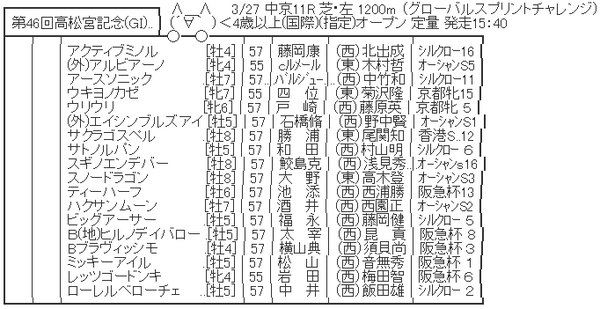 第46回高松宮記念(GI).. ∧ ∧ 3/27 中京11R 芝・左 1200m (グローバルスプリントチャレンジ)
( ´∀`) <4歳以上(国際)(指定)オープン 定量 発走15:40
アクティブミノル [牡4] 57 藤岡康 (西)北出成 シルクロー16
(外)アルビアーノ [牝4] 55 cルメール (東)木村哲 オーシャンS5
アースソニック [牡7] 57 ハルジュー.. (西)中竹和 シルクロー11
ウキヨノカゼ [牝7] 55 四 位 (東)菊沢隆 京都牝15
ウリウリ [牝6] 57 戸 崎 (西)藤原英 京都牝 5
(外)エイシンブルズアイ [牡5] 57 石橋脩 (西)野中賢 オーシャンS1
サクラゴスペル [牡8] 57 勝 浦 (東)尾関知 香港S..12
サトノルパン [牡5] 57 和 田 (西)村山明 シルクロー 6
スギノエンデバー [牡8] 57 鮫島克 (西)浅見秀.. オーシャンs16
スノードラゴン [牡8] 57 大 野 (東)高木登 オーシャンS3
ティーハーフ [牡6] 57 池 添 (西)西浦勝 阪急杯13
ハクサンムーン [牡7] 57 酒 井 (西)西園正 オーシャンS2
ビッグアーサー [牡5] 57 福 永 (西)藤岡健 シルクロー 5
B(地)ヒルノデイバロー [牡5] 57 太 宰 (西)昆 貢 阪急杯 8
Bブラヴィッシモ [牡4] 57 横山典 (西)須貝尚 阪急杯 3
ミッキーアイル [牡5] 57 松 山 (西)音無秀 阪急杯 1
レッツゴードンキ [牝4] 55 岩 田 (西)梅田智 阪急杯 6
ローレルベローチェ ..[牡5] 57 中 井 (西)飯田雄 シルクロー 2